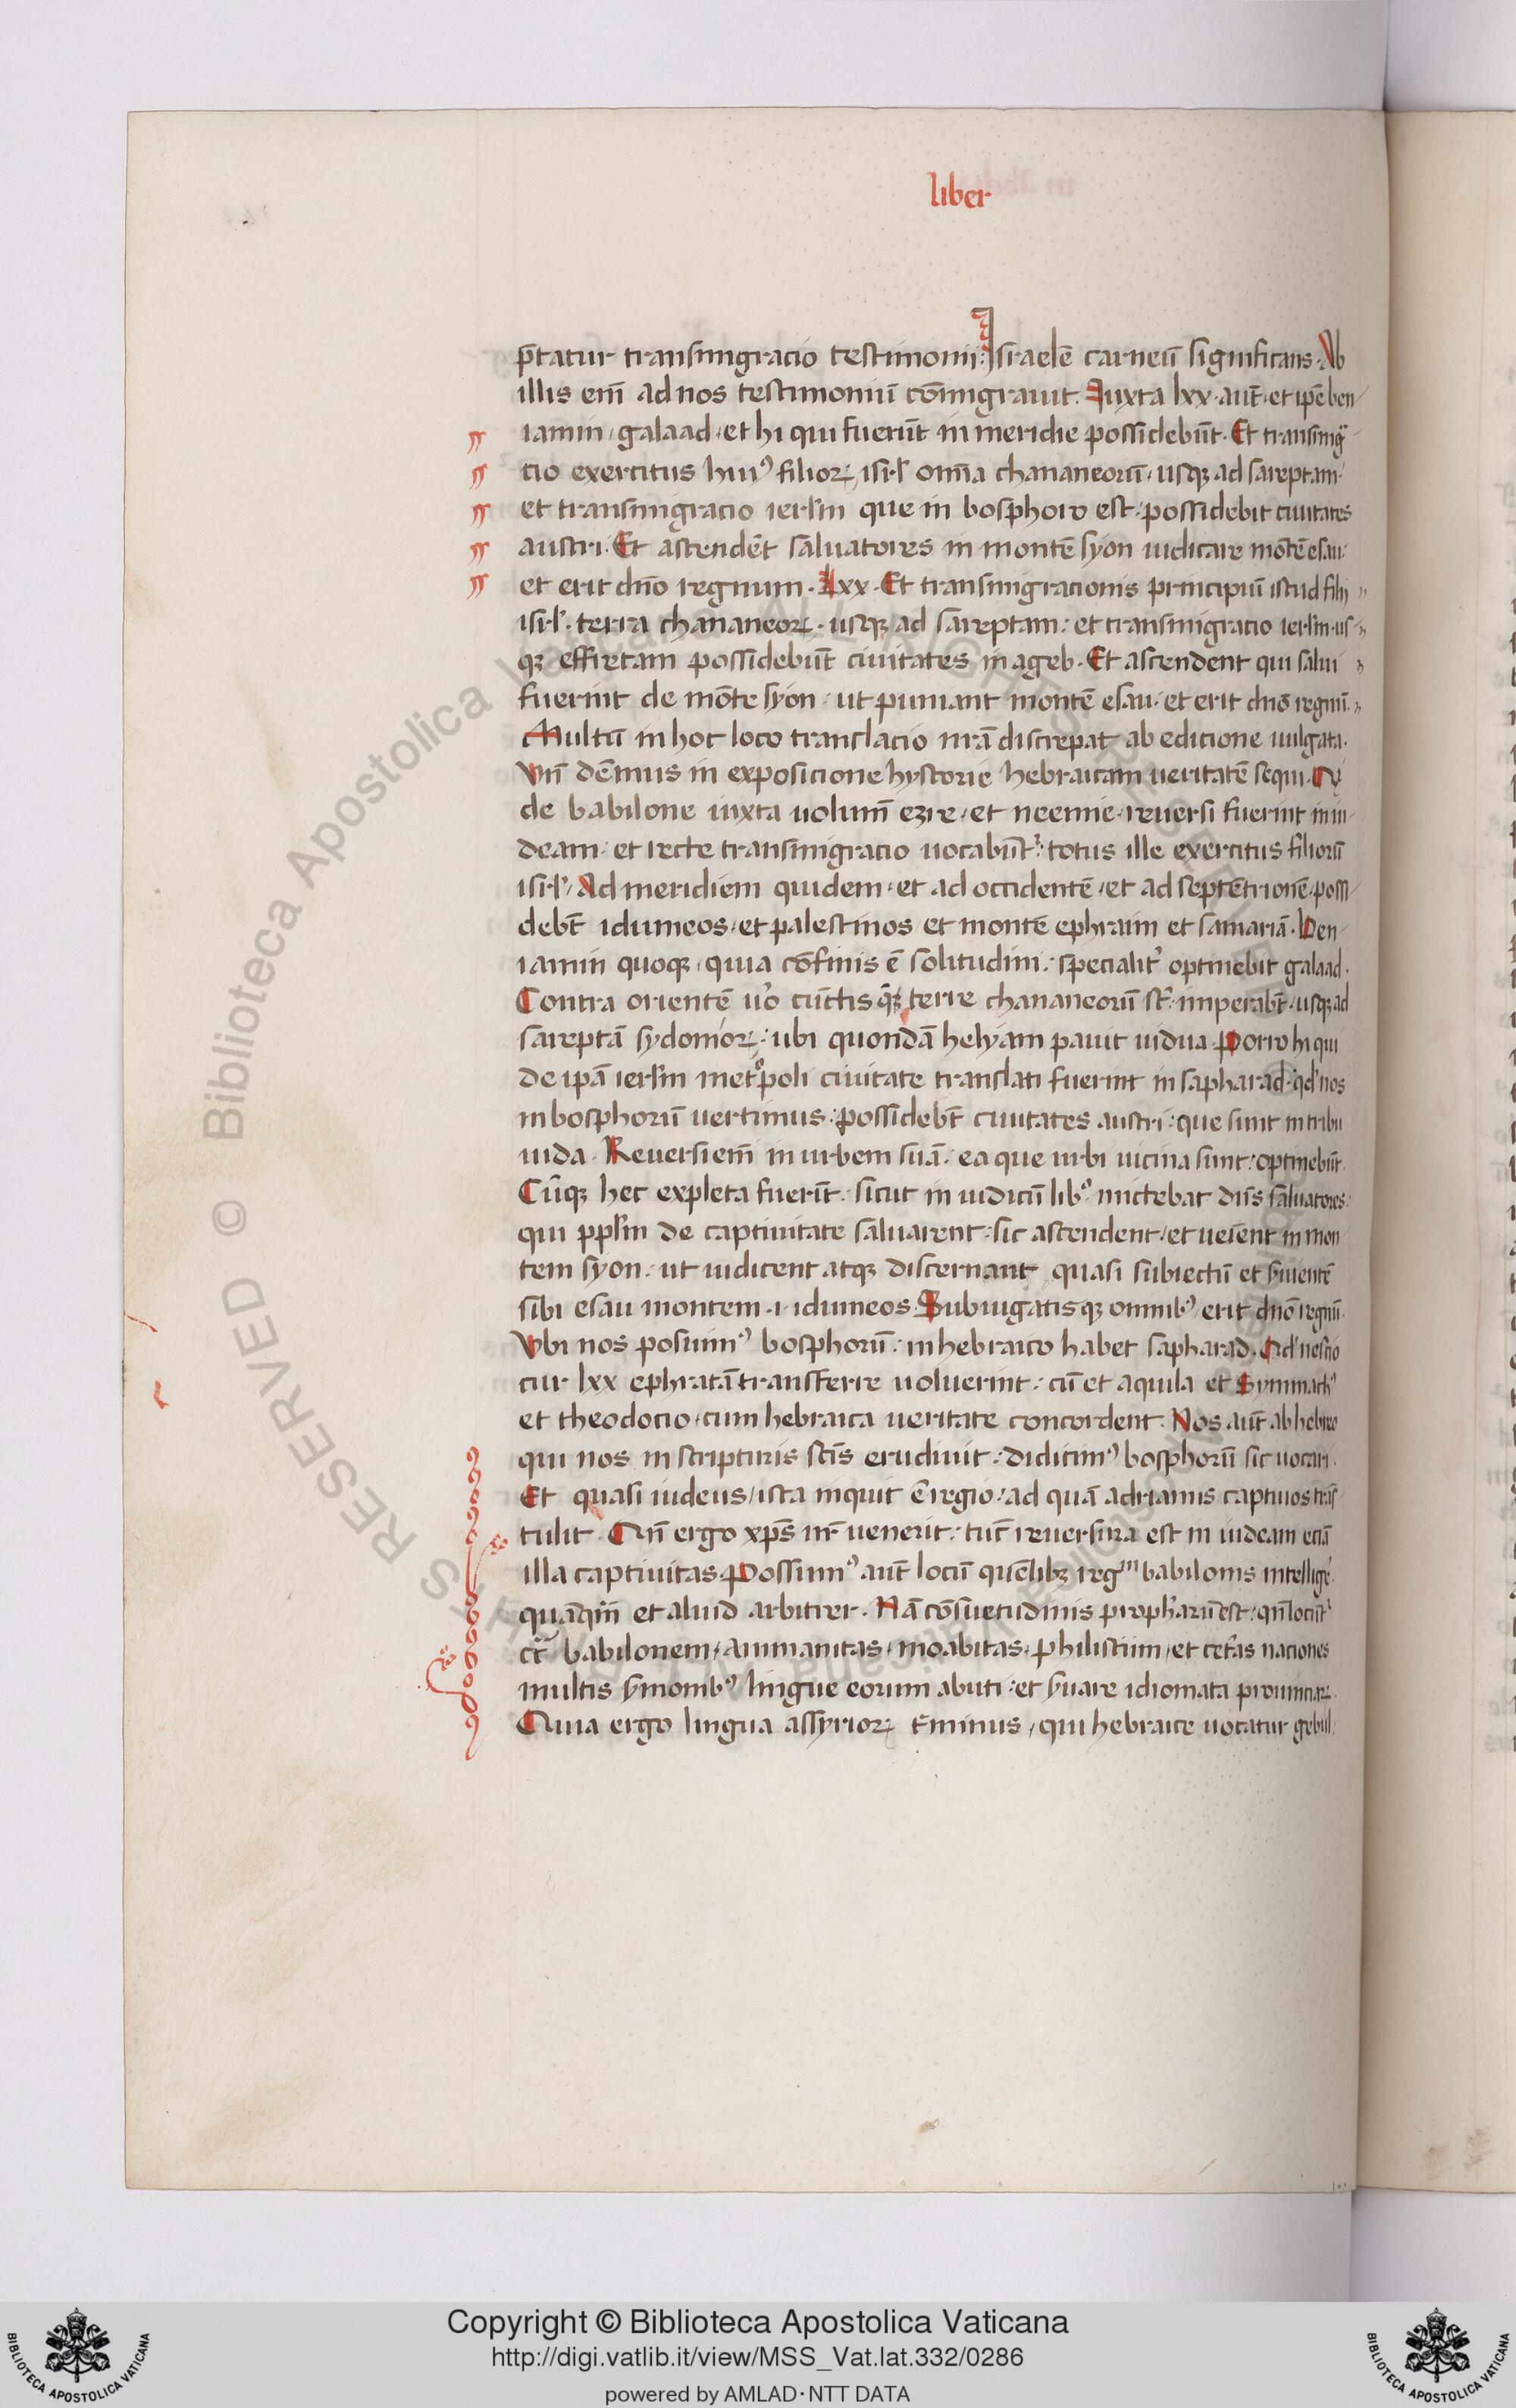 liber
p̄tatur transmigracio testimonii: Israelē carneū significans. Ab
illis em̄ ad nos testimoniū cōmigrauit. Iuxta lxx. aūt. et ip̄e ben
iamin, galaad. et hi qui fuerūt in meridie possidebūt. Et transmigᵃ
cio exercitus huiꝰ filioꝝ isrl̓ om̄a chananeorū, usqꝫ ad sareptam.
et transmigracio ierl̓m que in bosphoro est: possidebit ciuitates
austri. Et ascendēt saluatores in montē syon iudicare mōtē esau:
et erit dn̄o regnum. Lxx. Et transmigracionis principiū istud filii
isrl̓. terra chananeoꝝ. usqꝫ ad sareptam: et transmigracio ierl̓m. us
qꝫ effretam possidebūt ciuitates in ageb. Et ascendent qui salui
fuerint de mōte syon. ut puniant montē esau. et erit dn̄o regnū.
Multū in hoc loco translacio nr̄a discrepat ab edicione uulgata.
Vn̄ dēmus in exposicione hystorie hebraicam ueritatē sequi. Qͥ
de babilone iuxta uolum̄ ezre, et neemie. reuersi fuerint in iu
deam. et recte transmigracio uocabūtʳ: totus ille exercitus filiorū
isrl̓, Ad meridiem quidem. et ad occidentē, et ad septētrionē. possi
debt̄ idumeos. et palestinos et montē ephraim et samariā. Ben
iamin quoqꝫ, quia cōfinis ē solitudini: specialit̓ optinebit galaad.
Contra orientē u̓o cūctis q̄ꝫ terre chananeorū st̄. imperabt̄. usqꝫ ad
sareptā sydonioꝝ: ubi quondā helyam pauit uidua. Porro hi qui
de ipā ierl̓m met̓poli ciuitate translati fuerint in sapharad. qd̓ nos
in bosphorū uertimus: possidebt̄ ciuitates austri: que sunt in tribu
iuda. Reuersi em̄ in urbem suā. ea que urbi uicina sunt: optinebūt.
Cūqꝫ hec expleta fuerīt. sicut in iudicū libꝰ mictebat dn̄s saluatores:
qui ppl̓m de captiuitate saluarent: sic ascendent, et ueīent in mon
tem syon. ut iudicent atqꝫ discernant quasi subiectū et s̓uientē
sibi esau montem .i. idumeos. Subiugatisqꝫ omnibꝰ erit dn̄o regnū.
Vbi nos posuimꝰ bosphorū: in hebraico habet sapharad. Qd̓ nescio
cur lxx ephratā transferre uoluerint: cū et aquila et Symmachꝰ
et theodocio, cum hebraica ueritate concordent. Nos aūt ab hebreo
qui nos in scripturis sc̄is erudiuit: didicimꝰ bosphorū sic uocari.
Et quasi iudeus, ista inquit ē regio: ad quā adrianus captiuos trās
tulit. Qn̄ ergo xp̄s nr̄ uenerit: tūc reuersura est in iudeam eciā
illa captiuitas. Possumꝰ aūt locū quēlibꝫ regᵐ babilonis intellige̓.
quāqm̄ et aliud arbitrer. Nā cōsuetudinis prophetarū est: qn̄ locūtʳ
cͨ̄ babilonem, ammanitas, moabitas, philistiim, et cet̓as naciones
multis s̓monibꝰ lingue eorum abuti: et s̓uare idiomata prouinciaꝝ.
Quia ergo lingua assyrioꝝ tminus, qui hebraice uocatur gebul.
Copyright © Biblioteca Apostolica Vaticana
http://digi.vatlib.it/view/MSS_Vat.lat.332/0286
powered by AMLAD·NTT DATA